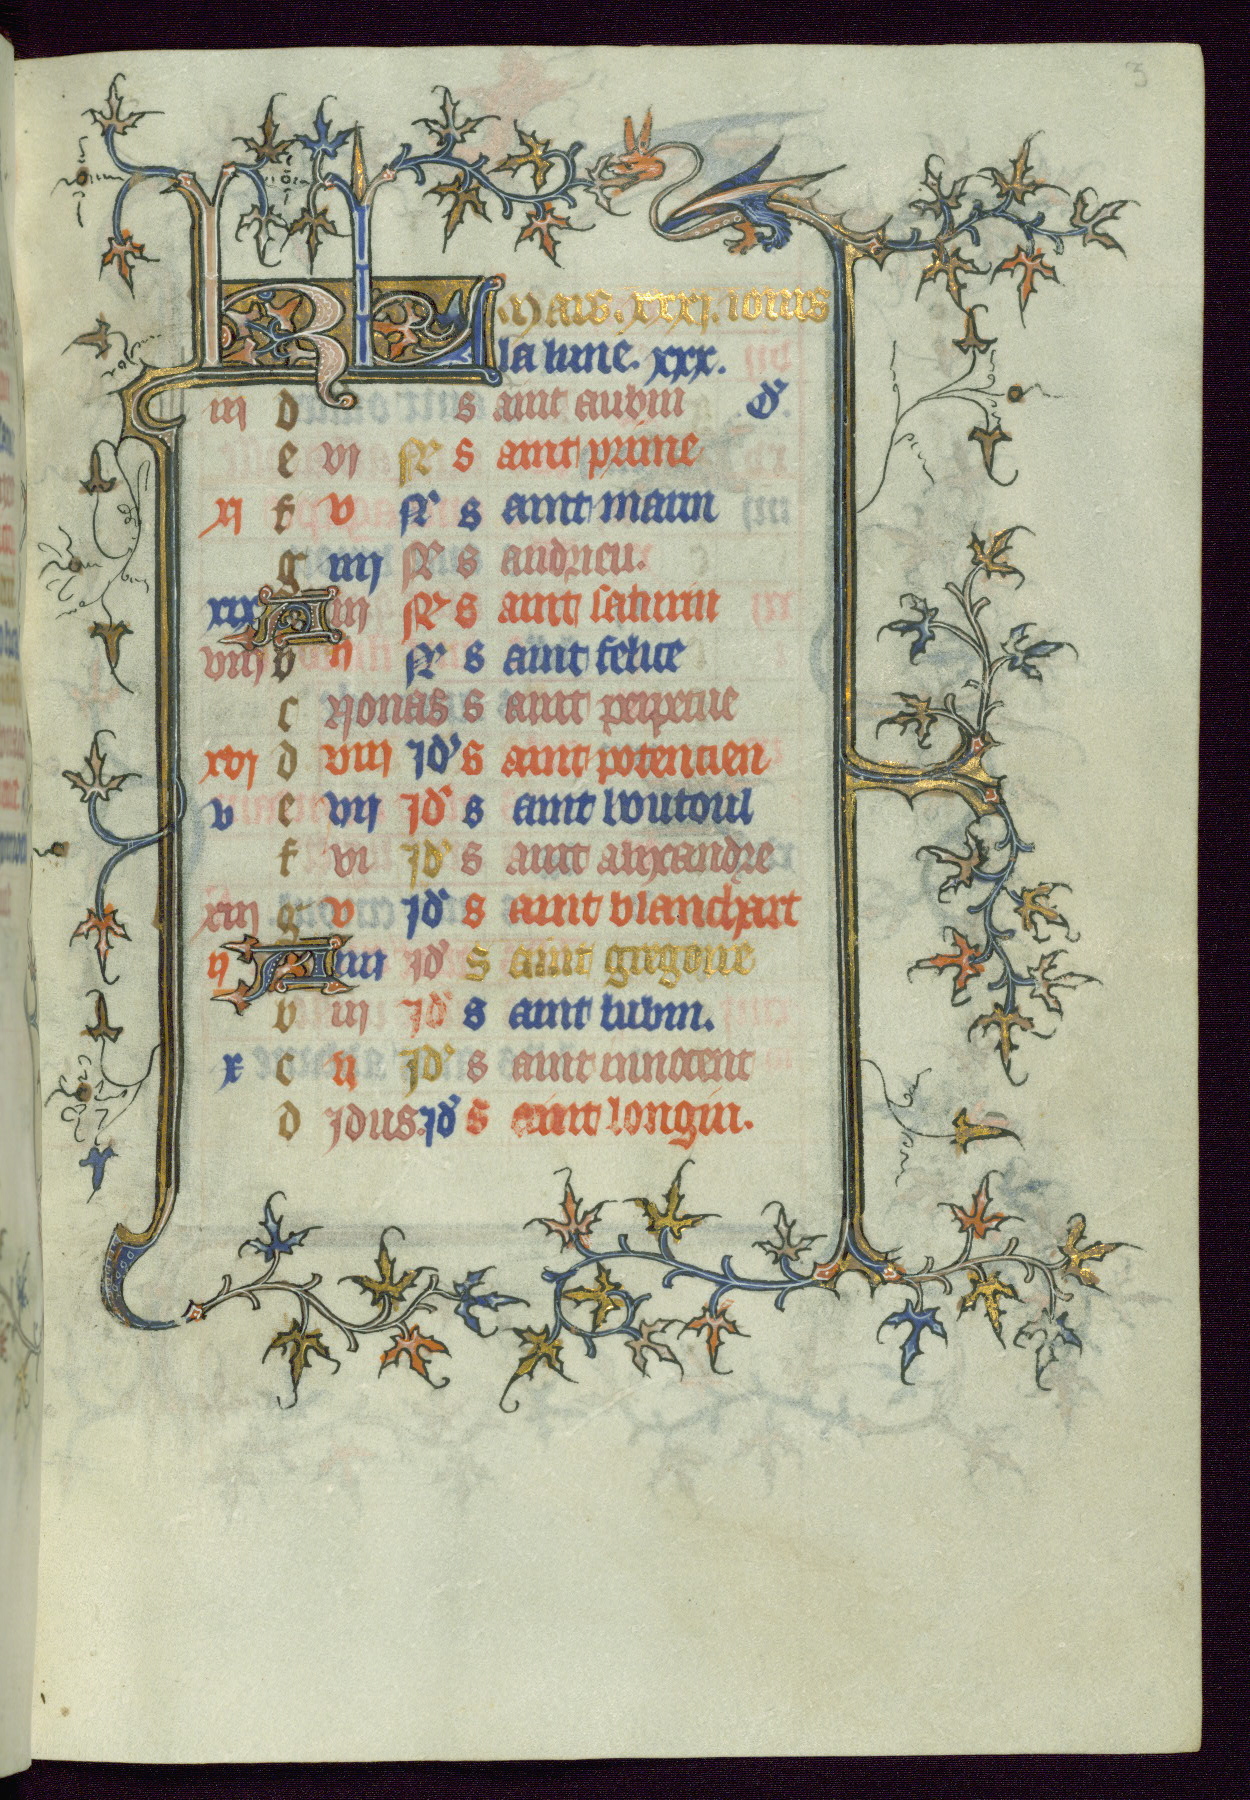 3
KL Mais. xxxj. iours
la lune. xxx.
iij d saint aubin .d
e vj N' saint prime
xj f v N' saint marin
g iiij N' s andrieu.
xix A iij N' saint saturin
viij b ij N' saint felice
c Nonas saint perpetue
xvj d viij Jd' saint potencien
v e vij Jd' saint
f vj Jd' saint alixandre
xiij g v Jd' saint blanchart
ij A iiij Jd' saint grigorie
b iij Jd' saint lubin.
x c ij Jd' saint innocent
d Jdus. Jd' saint longin.